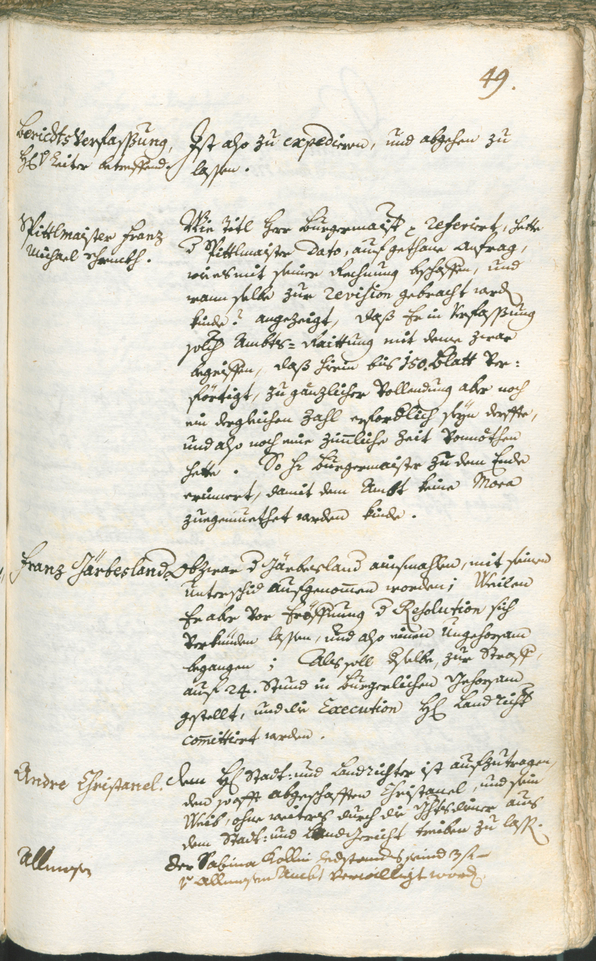 49.
Berichts Verfassung,
H: Leiter betreffend.
Ist also zu expedieren, und abgehen zu
lassen.
Spittlmaister Franz
Michael Schenckh.
Wie titl Herr Burgermaistr referirt, hette
d Spittlmaister dato, auf gethane anfrag,
wie es mit seiner Rechnung beschaffen, und
wann selbe zur revision gebracht werd
künde? angezeigt, daß Er in Verfassung
solch Ambts=Raittung mit deme zwar
begriffen, daß hierin bis 150. blatt Ver:
förtigt, zu gänzlicher Vollendung aber noch
ein dergleichen Zahl erfordlich seyn derffte,
und also noch eine zimmliche Zeit vonnöthen
hette. So H: Burgermaister zu dem Ende
erinnert, damit dem Ambt keine Mora
zuegemuethet werden künde.
Franz Järbesland
Obzwar d Järbesland ainsmahlen, mit seinem
unterschid aufgenommen worden; Weilen
Er aber vor Eröffnung d Resolution sich
verkünden lassen, und also einen ungehorsam
begangen; Als soll dselbe, zur Straff
auf 24. Stund in Burgerlichen gehorsam
gstellt, und die Execution H: Landricht
committiert werden.
Andre Christanel.
dem H: Statt: und Landrichter ist aufzutragen,
den hofft abgeschafften Christanel, und sein
Weib, ohne weiters durch die Grichtsdiener aus
dem Statt: und Landgericht treiben zu lass:
Allmosen
der Sabina Kollin seind 3 f
Allmosen Ambt verwilligt word.